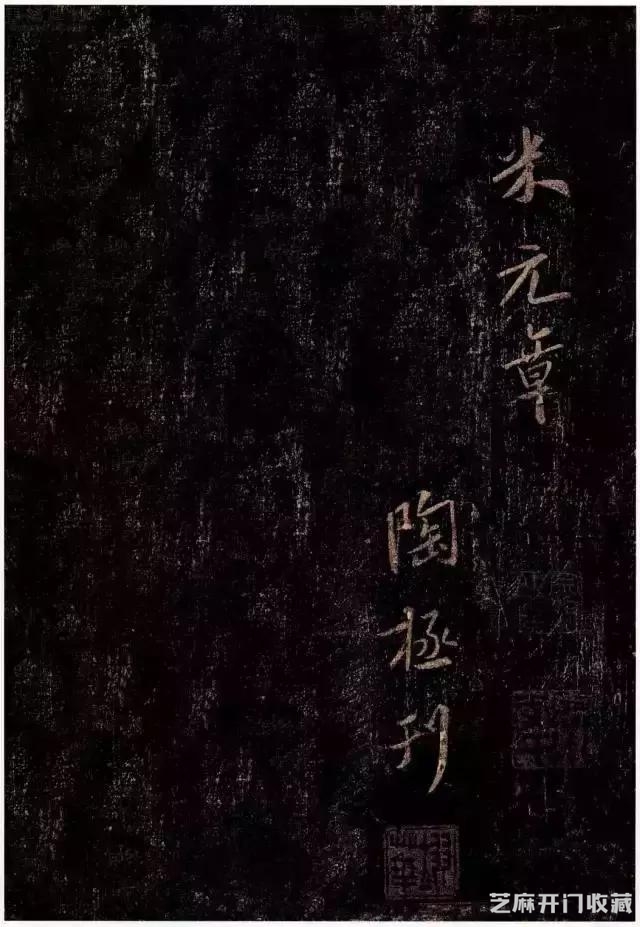 米元章
陶極刊
芝麻开门收藏